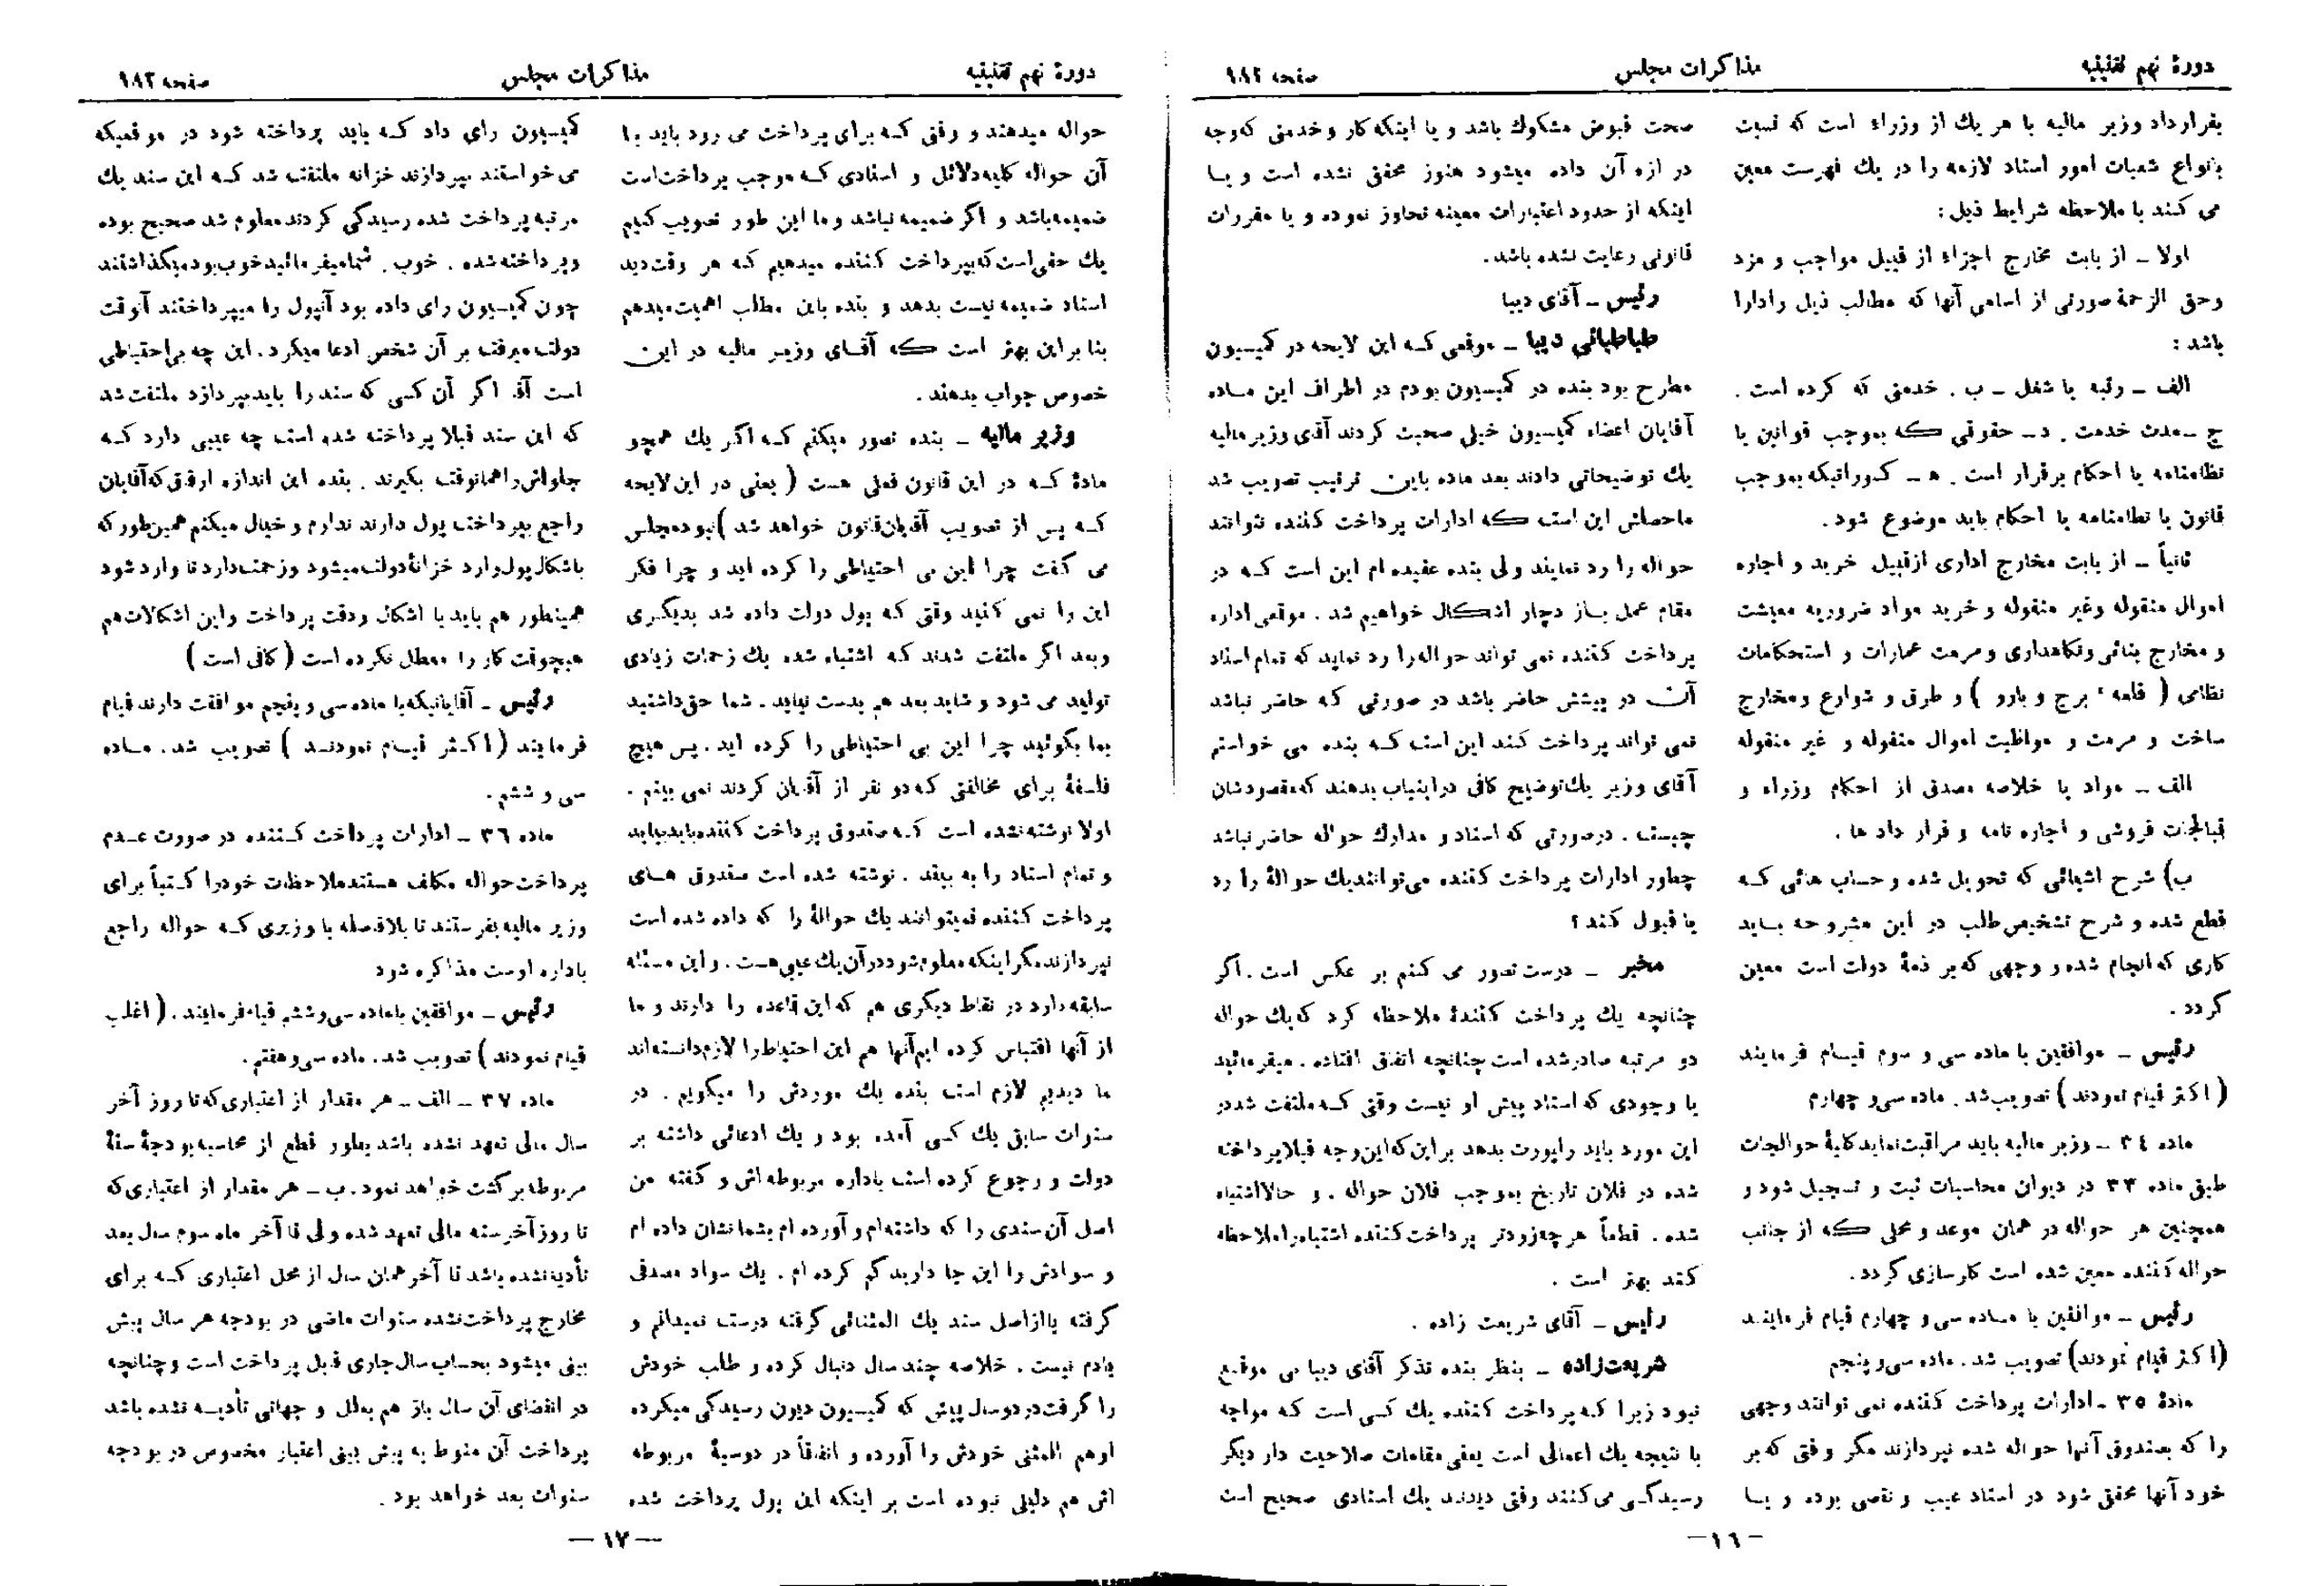 دورهٔ نهم تقنینیه
مذاکرات مجلس
صفحه ۱۸۲
بقرارداد وزیر مالیه با هر یك از وزراء است که نسبت
بانواع شعبات امور اسناد لازمه را در یك فهرست معین
می کنند با ملاحظه شرایط ذیل :
اولا ـ از بابت مخارج اجزاء از قبیل مواجب و مزد
وحق الزحمهٔ صورتی از اسامی آنها که مطالب ذیل رادارا
باشد :
الف ـ رتبه یا شغل ـ ب . خدمتی که کرده است .
ج ـ مدت خدمت . د ـ حقوقی که بموجب قوانین یا
نظامنامه یا احکام برقرار است . ه ـ کسوراتیکه بموجب
قانون یا نظامنامه یا احکام باید موضوع شود .
ثانیاً ـ از بابت مخارج اداری ازقبیل خرید و اجاره
اموال منقوله وغیر منقوله و خرید مواد ضروریه معیشت
و مخارج بنائی ونگاهداری و مرمت عمارات و استحکامات
نظامی ( قلعه ، برج و بارو ) و طرق و شوارع ومخارج
ساخت و مرمت و مواظبت اموال منقوله و غیر منقوله
الف ـ مواد یا خلاصه مصدق از احکام وزراء و
قبالجات فروشی و اجاره نامه و قرار داد ها .
ب) شرح اشیائی که تحویل شده و حساب هائی که
قطع شده و شرح تشخیص طلب در این مشروحه باید
کاری که انجام شده و وجهی که بر ذمهٔ دولت است معین
گردد .
رئیس ـ موافقین با ماده سی و سوم قیام فرمایند
( اکثر قیام نمودند ) تصویب شد . ماده سی و چهارم
ماده ۳٤ ـ وزیر مالیه باید مراقبت نماید کلیهٔ حوالجات
طبق ماده ۳۳ در دیوان محاسبات ثبت و تسجیل شود و
همچنین هر حواله در همان موعد و محلی که از جانب
حواله کننده معین شده است کارسازی گردد .
رئیس ـ موافقین با ماده سی و چهارم قیام فرمایند
(اکثر قیام نمودند) تصویب شد . ماده سی و پنجم
مادهٔ ۳٥ ـ ادارات پرداخت کننده نمی توانند وجهی
را که بصندوق آنها حواله شده نپردازند مگر وقتی که بر
خود آنها محقق شود در اسناد عیب و نقصی بوده و یا
صحت قبوض مشکوك باشد و یا اینکه کار و خدمتی که وجه
در ازه آن داده میشود هنوز محقق نشده است و یا
اینکه از حدود اعتبارات معینه تجاوز نموده و یا مقررات
قانونی رعایت نشده باشد .
رئیس ـ آقای دیبا
طباطبائی دیبا ـ موقعی که این لایحه در کمیسیون
مطرح بود بنده در کمیسیون بودم در اطراف این ماده
آقایان اعضاء کمیسیون خیلی صحبت کردند آقای وزیر مالیه
یك توضیحاتی دادند بعد ماده باین ترتیب تصویب شد
ماحصلش این است که ادارات پرداخت کننده نتوانند
حواله را رد نمایند ولی بنده عقیده ام این است که در
مقام عمل باز دچار اشکال خواهیم شد . موقعی اداره
پرداخت کننده نمی تواند حواله را رد نماید که تمام اسناد
آن در پیشش حاضر باشد در صورتی که حاضر نباشد
نمی تواند پرداخت کند این است که بنده می خواستم
آقای وزیر یك توضیح کافی دراینباب بدهند که مقصودشان
چیست . درصورتی که اسناد و مدارك حواله حاضر نباشد
چطور ادارات پرداخت کننده می توانند یك حوالهٔ را رد
یا قبول کند ؟
مخبر ـ درست تصور می کنم بر عکس است . اگر
چنانچه یك پرداخت کنندهٔ ملاحظه کرد که یك حواله
دو مرتبه صادر شده است چنانچه اتفاق افتاده . میفرمائید
با وجودی که اسناد پیش او نیست وقتی که ملتفت شد در
این مورد باید راپورت بدهد بر این که این وجه قبلا پرداخته
شده در فلان تاریخ بموجب فلان حواله . و حالا اشتباه
شده . قطعاً هر چه زودتر پرداخت کننده اشتباه را ملاحظه
کند بهتر است .
رئیس ـ آقای شریعت زاده .
شریعت زاده ـ بنظر بنده تذکر آقای دیبا بی موقع
نبود زیرا که پرداخت کننده یك کسی است که مواجه
با نتیجه یك اعمالی است یعنی مقامات صلاحیت دار دیگر
رسیدگی می کنند وقتی دیدند یك اسنادی صحیح است
ـ ۱٦ ـ
دورهٔ نهم تقنینیه
مذاکرات مجلس
صفحه ۱۸۳
حواله میدهند و وقتی که برای پرداخت می رود باید با
آن حواله کلیه دلائل و اسنادی که موجب پرداخت است
ضمیمه باشد و اگر ضمیمه نباشد و ما این طور تصویب کنیم
یك حقی است که بپرداخت کننده میدهیم که هر وقت دید
اسناد ضمیمه نیست بدهد و بنده باین مطلب اهمیت میدهم
بنا بر این بهتر است که آقای وزیر مالیه در این
خصوص جواب بدهند .
وزیر مالیه ـ بنده تصور میکنم که اگر یك همچو
مادهٔ که در این قانون فعلی هست ( یعنی در این لایحه
که پس از تصویب آقایان قانون خواهد شد ) نبود مجلس
می گفت چرا این بی احتیاطی را کرده اید و چرا فکر
این را نمی کنید وقتی که پول دولت داده شد بدیگری
وبعد اگر ملتفت شدند که اشتباه شده یك زحمات زیادی
تولید می شود و شاید بعد هم بدست نیاید . شما حق داشتید
بما بگوئید چرا این بی احتیاطی را کرده اید . پس هیچ
فلسفهٔ برای مخالفتی که دو نفر از آقایان کردند نمی بینم .
اولا نوشته نشده است که صندوق پرداخت کننده باید بیاید
و تمام اسناد را به بیند . نوشته شده است صندوق های
پرداخت کننده نمیتوانند یك حوالهٔ را که داده شده است
نپردازند مگر اینکه معلوم شود در آن یك عیبی هست . و این مسئله
سابقه دارد در نقاط دیگری هم که این قاعده را دارند و ما
از آنها اقتباس کرده ایم آنها هم این احتیاط را لازم دانسته اند
ما دیدیم لازم است بنده یك موردش را میگویم . در
سنوات سابق یك کسی آمده بود و یك ادعائی داشته بر
دولت و رجوع کرده است باداره مربوطه اش و گفته من
اصل آن سندی را که داشته ام و آورده ام بشما نشان داده ام
و سوادش را این جا دارید گم کرده ام . یك سواد مصدقی
گرفته یا از اصل سند یك المثنائی گرفته درست نمیدانم و
یادم نیست . خلاصه چند سال دنبال کرده و طلب خودش
را گرفت در دو سال پیش که کمیسیون دیون رسیدگی میکرده
او هم المثنی خودش را آورده و اتفاقاً در دوسیهٔ مربوطه
اش هم دلیلی نبوده است بر اینکه این پول پرداخت شده
کمیسیون رأی داد که باید پرداخته شود در موقعیکه
می خواستند بپردازند خزانه ملتفت شد که این سند یك
مرتبه پرداخت شده رسیدگی کردند معلوم شد صحیح بوده
و پرداخته شده . خوب . شما میفرمائید خوب بود میگذاشتند
چون کمیسیون رأی داده بود آنپول را میپرداختند آنوقت
دولت میرفت بر آن شخص ادعا میکرد . این چه بی احتیاطی
است آقا اگر آن کسی که سند را باید بپردازد ملتفت شد
که این سند قبلا پرداخته شده است چه عیبی دارد که
جلواش را همانوقت بگیرند . بنده این اندازه ارفاق که آقایان
راجع بپرداخت پول دارند ندارم و خیال میکنم همین طور که
باشکال پول وارد خزانهٔ دولت میشود و زحمت دارد تا وارد شود
همینطور هم باید با اشکال ودقت پرداخت و این اشکالات هم
هیچوقت کار را معطل نکرده است ( کافی است )
رئیس ـ آقایانیکه با ماده سی و پنجم موافقت دارند قیام
فرمایند ( اکثر قیام نمودند ) تصویب شد . ماده
سی و ششم .
ماده ۳٦ ـ ادارات پرداخت کننده در صورت عدم
پرداخت حواله مکلف هستند ملاحظات خودرا کتباً برای
وزیر مالیه بفرستند تا بلافاصله با وزیری که حواله راجع
باداره اوست مذاکره شود
رئیس ـ موافقین با ماده سی و ششم قیام فرمایند . ( اغلب
قیام نمودند ) تصویب شد . ماده سی و هفتم .
ماده ۳۷ ـ الف ـ هر مقدار از اعتباری که تا روز آخر
سال مالی تعهد نشده باشد بطور قطع از محاسبه بودجهٔ سنهٔ
مربوطه برگشت خواهد نمود . ب ـ هر مقدار از اعتباری که
تا روز آخر سنه مالی تعهد شده ولی تا آخر ماه سوم سال بعد
تأدیه نشده باشد تا آخر همان سال از محل اعتباری که برای
مخارج پرداخت نشده سنوات ماضی در بودجه هر سال پیش
بینی میشود بحساب سال جاری قابل پرداخت است و چنانچه
در انقضای آن سال باز هم بعلل و جهاتی تأدیه نشده باشد
پرداخت آن منوط به پیش بینی اعتبار مخصوص در بودجه
سنوات بعد خواهد بود .
ـ ۱۷ ـ